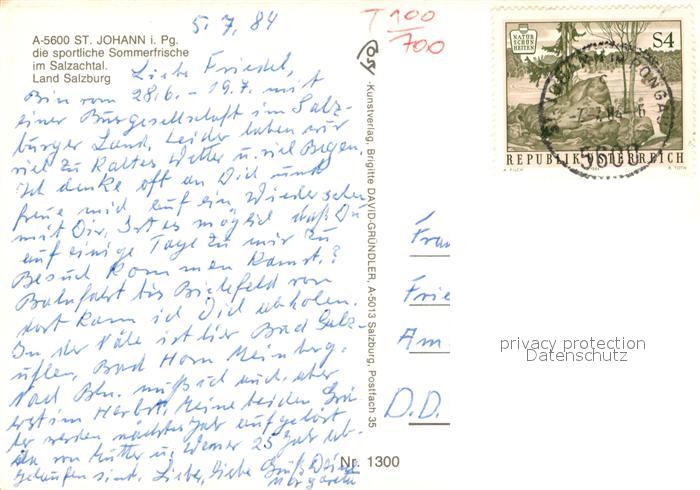 5.7.84
A-5600 ST. JOHANN i. Pg.
die sportliche Sommerfrische
im Salzachtal.
Land Salzburg
Liebe Friedel,
Bin vom 28.6. - 19.7. mit
einer Busgesellschaft im Salz-
burger Land. Leider haben wir
viel zu kaltes Wetter u. viel Regen.
Ich denke oft an Dich und
freue mich auf ein Wiedersehen
mit Dir. Ist es möglich daß Du
auf einige Tage zu mir zu
Besuch kommen kannst?
Bahnfahrt bis Bielefeld von
dort kann ich Dich abholen.
In der Nähe ist hier Bad Salz-
uflen, Bad Horn Meinberg.
Nach Bln. muß ich auch, aber
erst im Herbst. Meine beiden Grä-
ber werden nächstes Jahr aufgelöst
da von Mutter u. Werner 25 Jahr ab-
gelaufen sind. Liebe, liebe Grüße Deine
Margarete
T 100
700
-Kunstverlag, Brigitte DAVID-GRÜNDLER, A-5013 Salzburg, Postfach 35
Nr. 1300
NATUR
SCHÖN
HEITEN
S4
ST. JOHANN IM PONGAU
5600
REPUBLIK ÖSTERREICH
A. PILCH
A. TOTH
Frau
Frie
Am
D.D.
privacy protection
Datenschutz